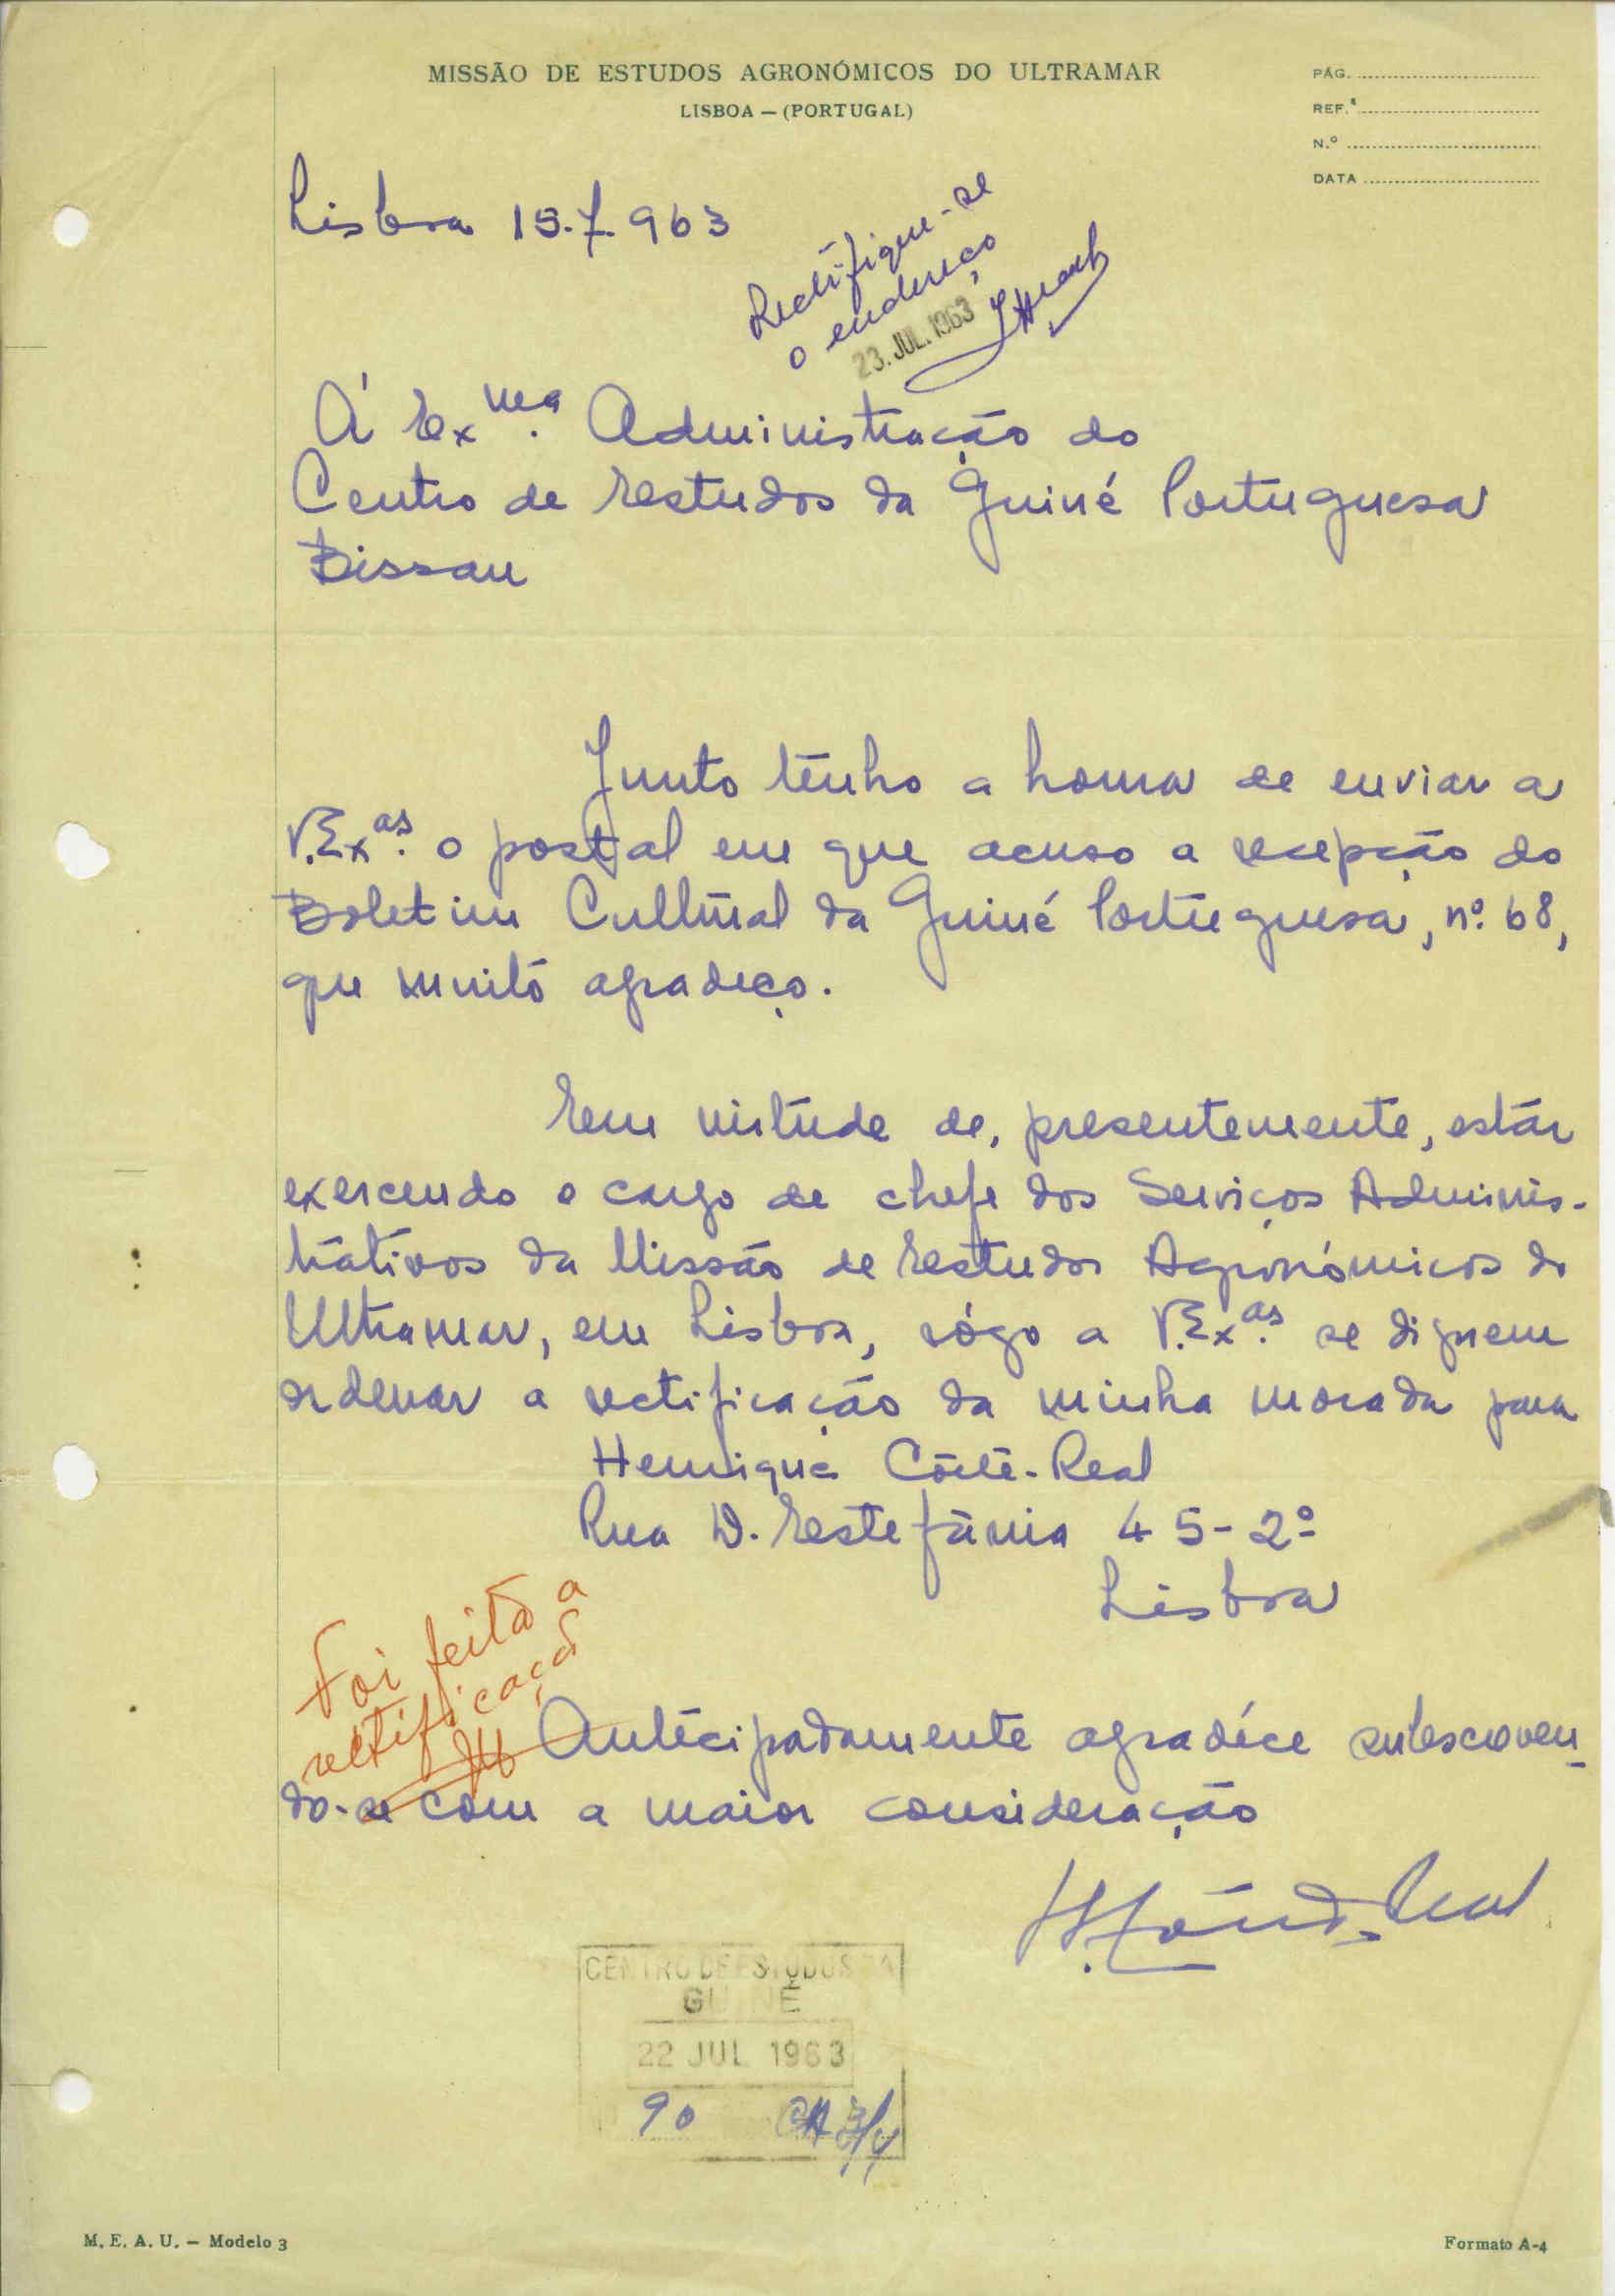 MISSÃO DE ESTUDOS AGRONÓMICOS DO ULTRAMAR
LISBOA — (PORTUGAL)
PÁG.
REF.ª
N.º
DATA
Lisboa 15.7.963
Rectifique-se
o endereço
23. JUL. 1963
Á Exma. Administração do
Centro de Estudos da Guiné Portuguesa
Bissau
Junto tenho a honra de enviar a
V.Exas. o postal em que acuso a recepção do
Boletim Cultural da Guiné Portuguesa, nº. 68,
que muito agradeço.
Em virtude de, presentemente, estár
exercendo o cargo de chefe dos Serviços Adminis-
trativos da Missão de Estudos Agronómicos do
Ultramar, em Lisboa, rógo a V.Exas. se dignem
ordenar a rectificação da minha morada para
Henrique Côrte-Real
Rua D. Estefânia 45-2º
Lisboa
Foi feita a
rectificação
Antecipadamente agradéce subscreven-
do-se com a maior consideração
H. Côrte-Real
CENTRO DE ESTUDOS DA
GUINÉ
22 JUL 1963
90
M. E. A. U. — Modelo 3
Formato A-4